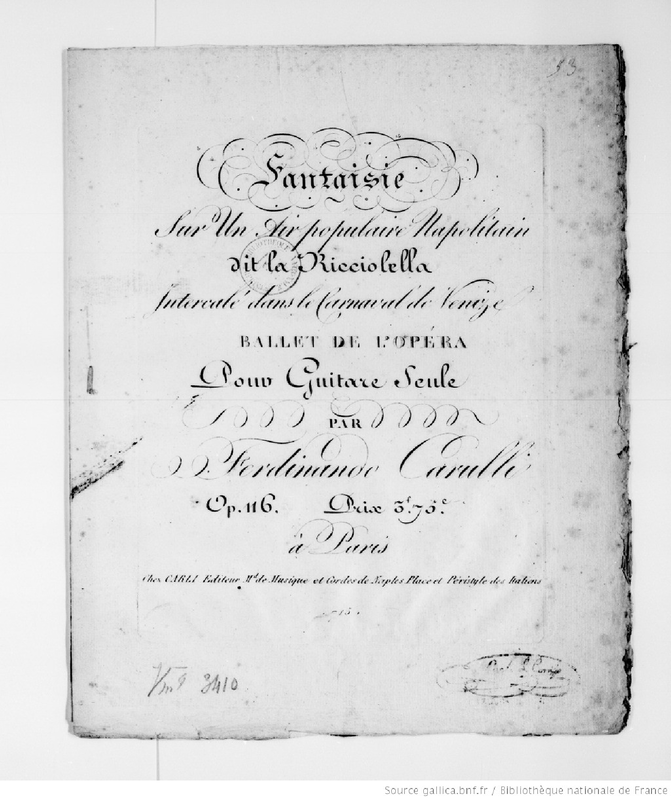 53
Fantaisie
Sur Un Air populaire Napolitain
dit la Ricciolella
Intercalé dans le Carnaval de Venize
BALLET DE L'OPÉRA
Pour Guitare Seule
PAR
Ferdinando Carulli
Op. 116. Prix 3f. 75c.
à Paris
Chez CARLI Editeur Md. de Musique et Cordes de Naples Place et Péristyle des Italiens
715.
Vm9 3410
Source gallica.bnf.fr / Bibliothèque nationale de France